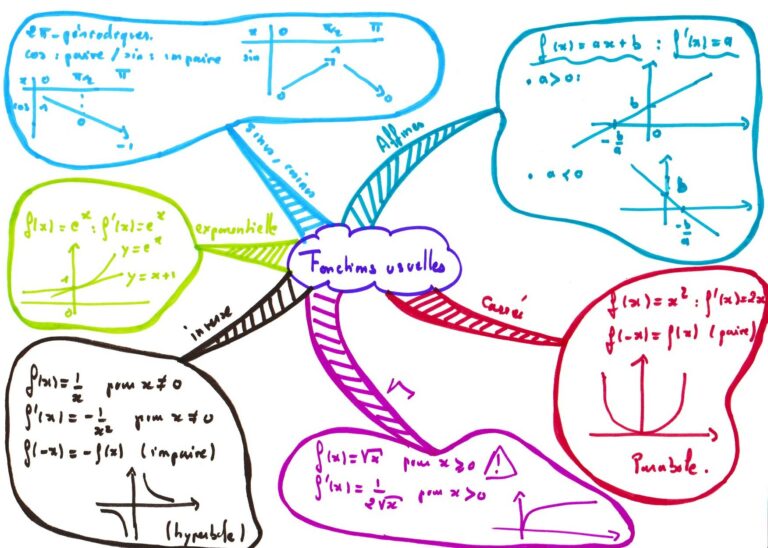 Fonctions usuelles
sinus, cosinus
2π-périodiques.
cos : paire / sin : impaire
x 0 π/2 π
cos 1 0 -1
x 0 π/2 π
sin 0 1 0
Affines
f(x) = ax + b : f'(x) = a
. a > 0 :
b
-b/a 0
. a < 0
b
-b/a
exponentielle
f(x) = e^x : f'(x) = e^x
y = e^x
1 y = x+1
0
Carré
f(x) = x² : f'(x) = 2x
f(-x) = f(x) (paire)
Parabole.
inverse
f(x) = 1/x pour x ≠ 0
f'(x) = -1/x² pour x ≠ 0
f(-x) = -f(x) (impaire)
(hyperbole)
√
f(x) = √x pour x ⩾ 0 !
f'(x) = 1/2√x pour x > 0